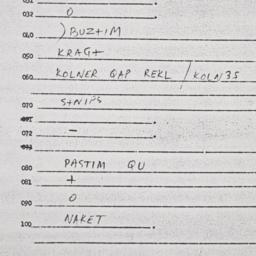 031 .
032 O .
040 ) BUZ+IM
050 KRAG+
060 KOLNER GAP REKL / KOLN 35
070 S+NIPS
071 .
072 - .
073
080 PASTIM QU
081 +
090 O
100 NAKET .